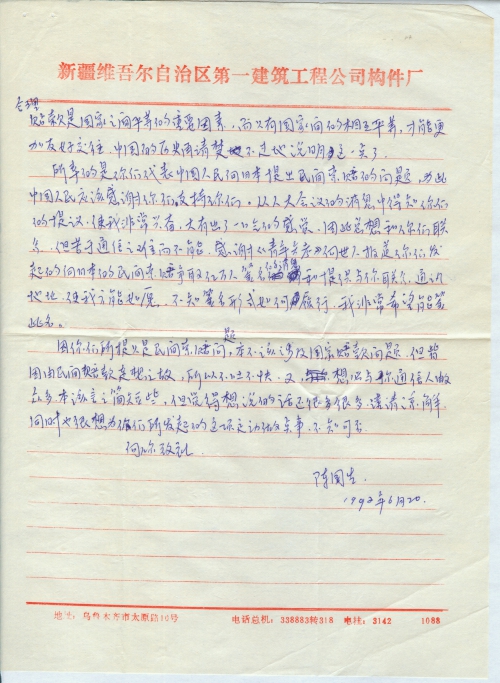 新疆维吾尔自治区第一建筑工程公司构件厂
合理
赔款是国家之间平等的重要因素，而只有国家间的相互平等，才能更
加友好交往．中国的历史再清楚不过地说明这一点了
所幸的是你们代表中国人民向日本提出民间索赔的问题，为此
中国人民应该感谢你们支持你们。从人大会议的消息中得知你们
的提议，使我非常兴奋，大有出了一口气的感觉，因此总想和你们联
系，但苦于通信之难而不能，感谢《青年参考》何世人报道你们发
起的向日本的民间索赔 万人签名 和提供与你联系，通讯
地址，使我才能如愿，不知签名形式如何履行，我非常希望能签
此名。
因你们所提只是民间索赔问题，本不该涉及国家赔款问题，但皆
因由民间赔款哀想之故，所以不吐不快，又想法与你通信人
太多，本该言之简短些，但觉得想说的话还很多很多，
同时也很想为你们所发起的这项运动做点实事，不知可否
何尔致礼
陈国生．
1992年6月20．
地址：乌鲁木齐市太原路10号 电话总机：338883转318 电挂：3142 1088